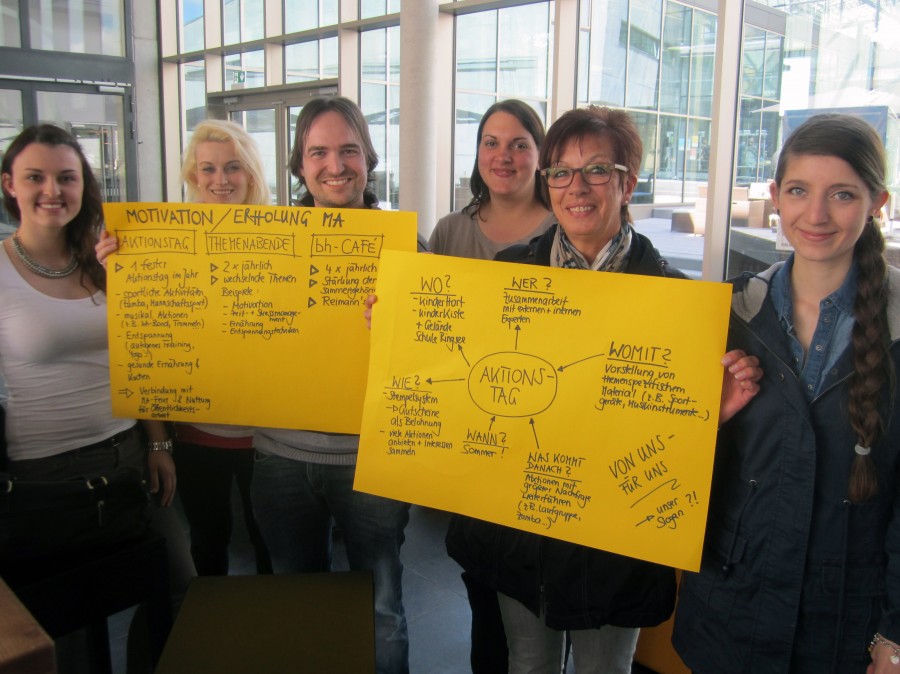 MOTIVATION / ERHOLUNG MA
AKTIONSTAG
▷ 1 fester
Aktionstag im Jahr
- sportliche Aktivitäten
(Zumba, Mannschaftssport)
- musikal. Aktionen
(z.B. bh-Band, Trommeln)
- Entspannung
(autogenes Training,
Yoga...)
- gesunde Ernährung &
Kochen
⇒ Verbindung mit
& Nutzung
für Öffentlichkeits-
arbeit
THEMENABENDE
▷ 2x jährlich
▷ wechselnde Themen
Beispiele:
- Motivation
- Zeit- + Stressmanage-
ment
- Ernährung
- Entspannungstechniken
bh-CAFÉ
▷ 4x jährlich
▷ Stärkung der
▷ Reimann's
WO?
- Kinderhort
- Kinderkiste
+ Gelände
Schule Ringsee
WER?
Zusammenarbeit
mit externen + internen
Experten
WOMIT?
Vorstellung von
themenspezifischem
Material (z.B. Sport-
geräte, Musikinstrumente...)
AKTIONS-
TAG
WIE?
- Stempelsystem
→ Gutscheine
als Belohnung
- viele Aktionen
anbieten + Interessen
sammeln
WANN?
Sommer!
WAS KOMMT
DANACH?
Aktionen mit
größter Nachfrage
weiterführen
(z.B. Laufgruppe,
Zumba...)
VON UNS -
FÜR UNS
→ unser ?!
Slogan